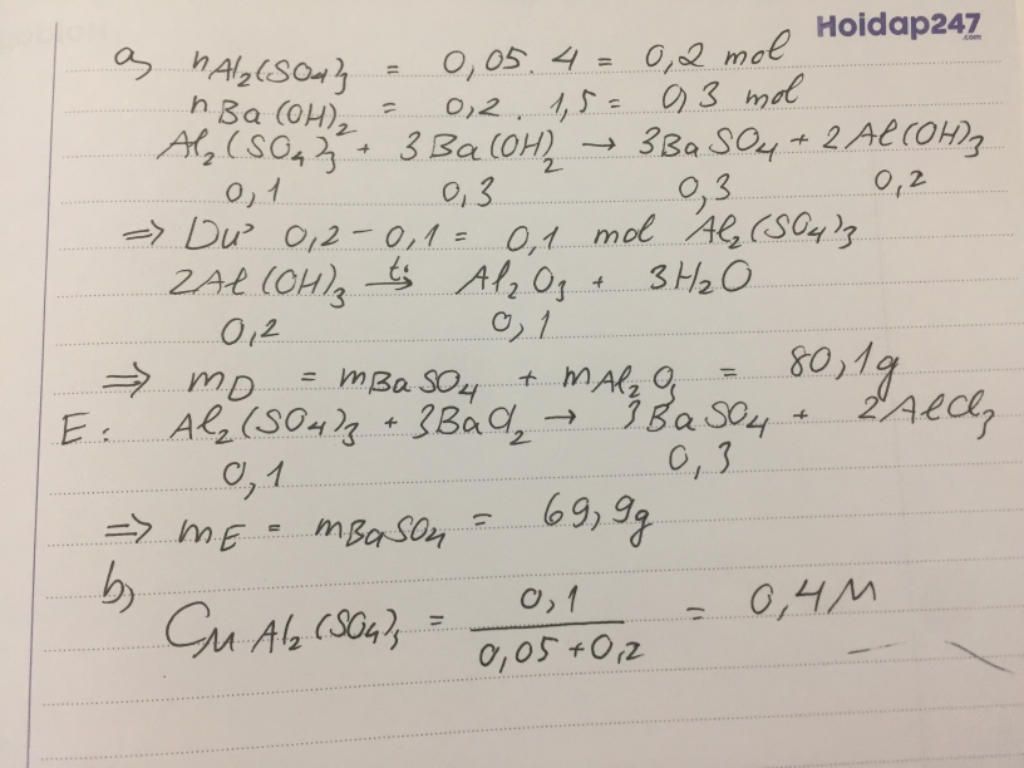 Hoidap247
.com
a) nAl₂(SO₄)₃ = 0,05 . 4 = 0,2 mol
nBa(OH)₂ = 0,2 . 1,5 = 0,3 mol
Al₂(SO₄)₃ + 3Ba(OH)₂ → 3BaSO₄ + 2Al(OH)₃
0,1 0,3 0,3 0,2
=> Dư 0,2 - 0,1 = 0,1 mol Al₂(SO₄)₃
2Al(OH)₃ →(t°) Al₂O₃ + 3H₂O
0,2 0,1
=> mD = mBaSO₄ + mAl₂O₃ = 80,1g
E: Al₂(SO₄)₃ + 3BaCl₂ → 3BaSO₄ + 2AlCl₃
0,1 0,3
=> mE = mBaSO₄ = 69,9g
b)
CM Al₂(SO₄)₃ = 0,1 / (0,05 + 0,2) = 0,4M